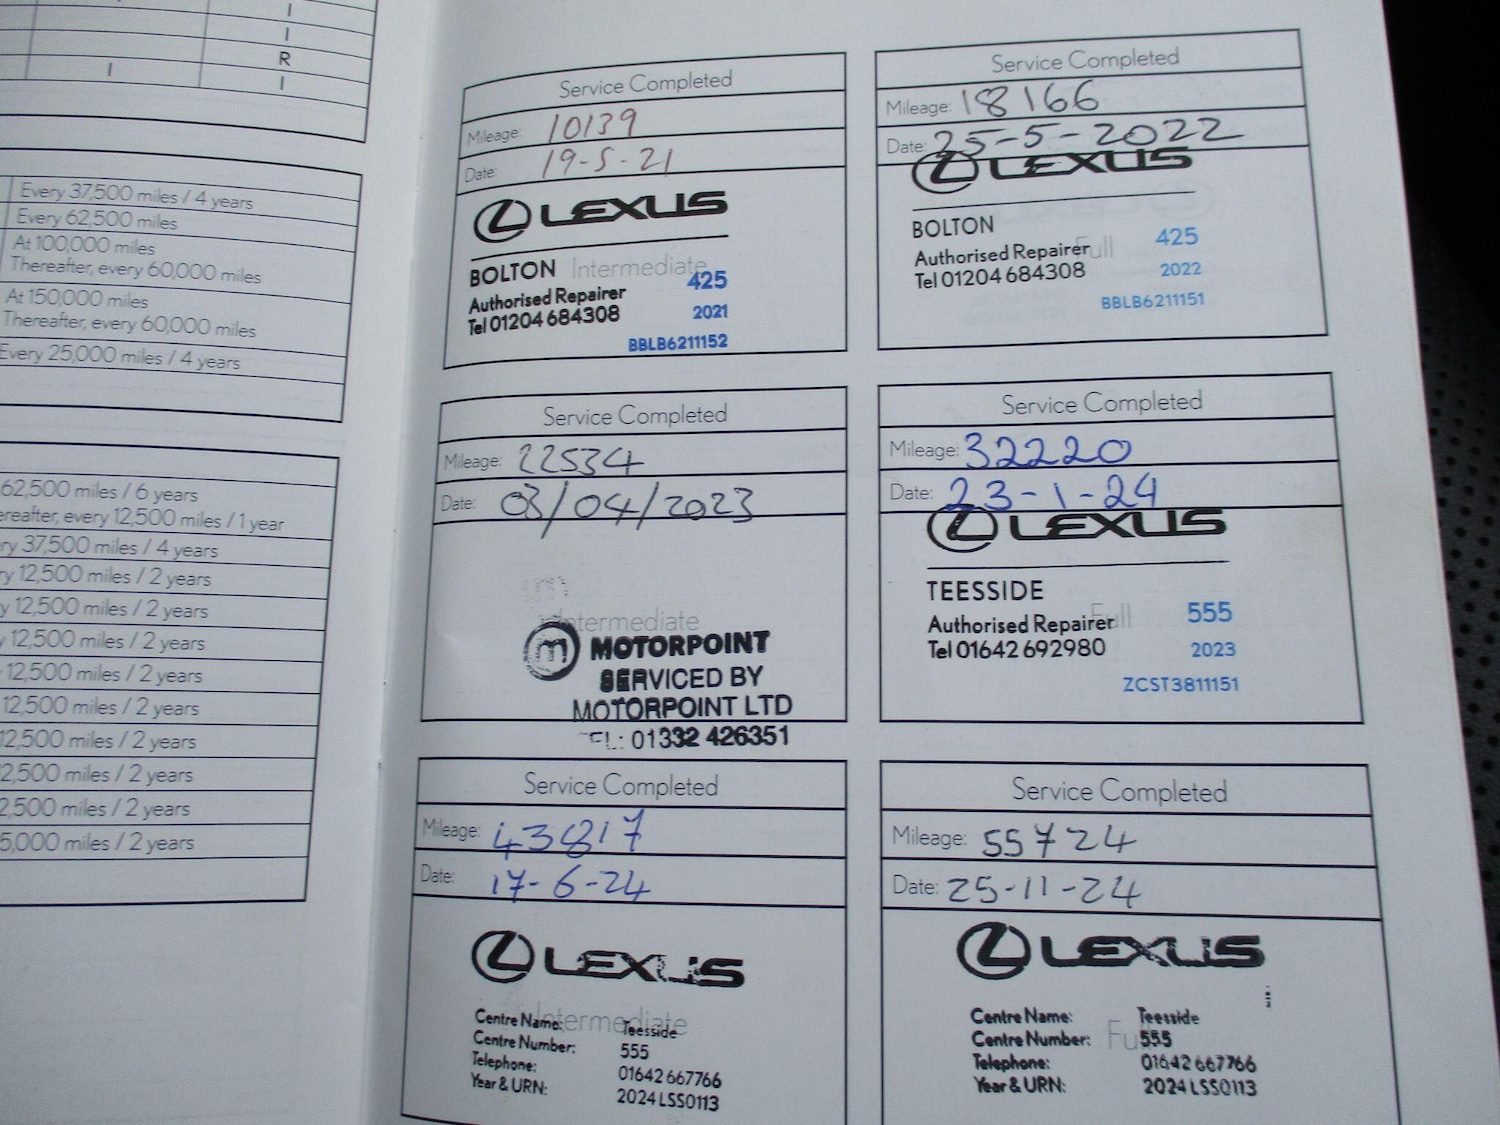 I
I
R
I I
Every 37,500 miles / 4 years
Every 62,500 miles
At 100,000 miles
Thereafter, every 60,000 miles
At 150,000 miles
Thereafter, every 60,000 miles
Every 25,000 miles / 4 years
62,500 miles / 6 years
ereafter, every 12,500 miles / 1 year
ry 37,500 miles / 4 years
ry 12,500 miles / 2 years
y 12,500 miles / 2 years
12,500 miles / 2 years
12,500 miles / 2 years
12,500 miles / 2 years
12,500 miles / 2 years
2,500 miles / 2 years
2,500 miles / 2 years
5,000 miles / 2 years
Service Completed
Mileage: 10139
Date: 19-5-21
LEXUS
BOLTON Intermediate
Authorised Repairer 425
Tel 01204 684308 2021
BBLB6211152
Service Completed
Mileage: 18166
Date: 25-5-2022
LEXUS
BOLTON
Authorised Repairer Full 425
Tel 01204 684308 2022
BBLB6211151
Service Completed
Mileage: 22534
Date: 03/04/2023
Intermediate
m MOTORPOINT
SERVICED BY
MOTORPOINT LTD
TEL: 01332 426351
Service Completed
Mileage: 32220
Date: 23-1-24
LEXUS
TEESSIDE
Authorised Repairer Full 555
Tel 01642 692980 2023
ZCST3811151
Service Completed
Mileage: 43817
Date: 17-6-24
LEXUS
Intermediate
Centre Name: Teesside
Centre Number: 555
Telephone: 01642 667766
Year & URN: 2024 LSS0113
Service Completed
Mileage: 55724
Date: 25-11-24
LEXUS
Centre Name: Teesside
Centre Number: Full 555
Telephone: 01642 667766
Year & URN: 2024 LSS0113